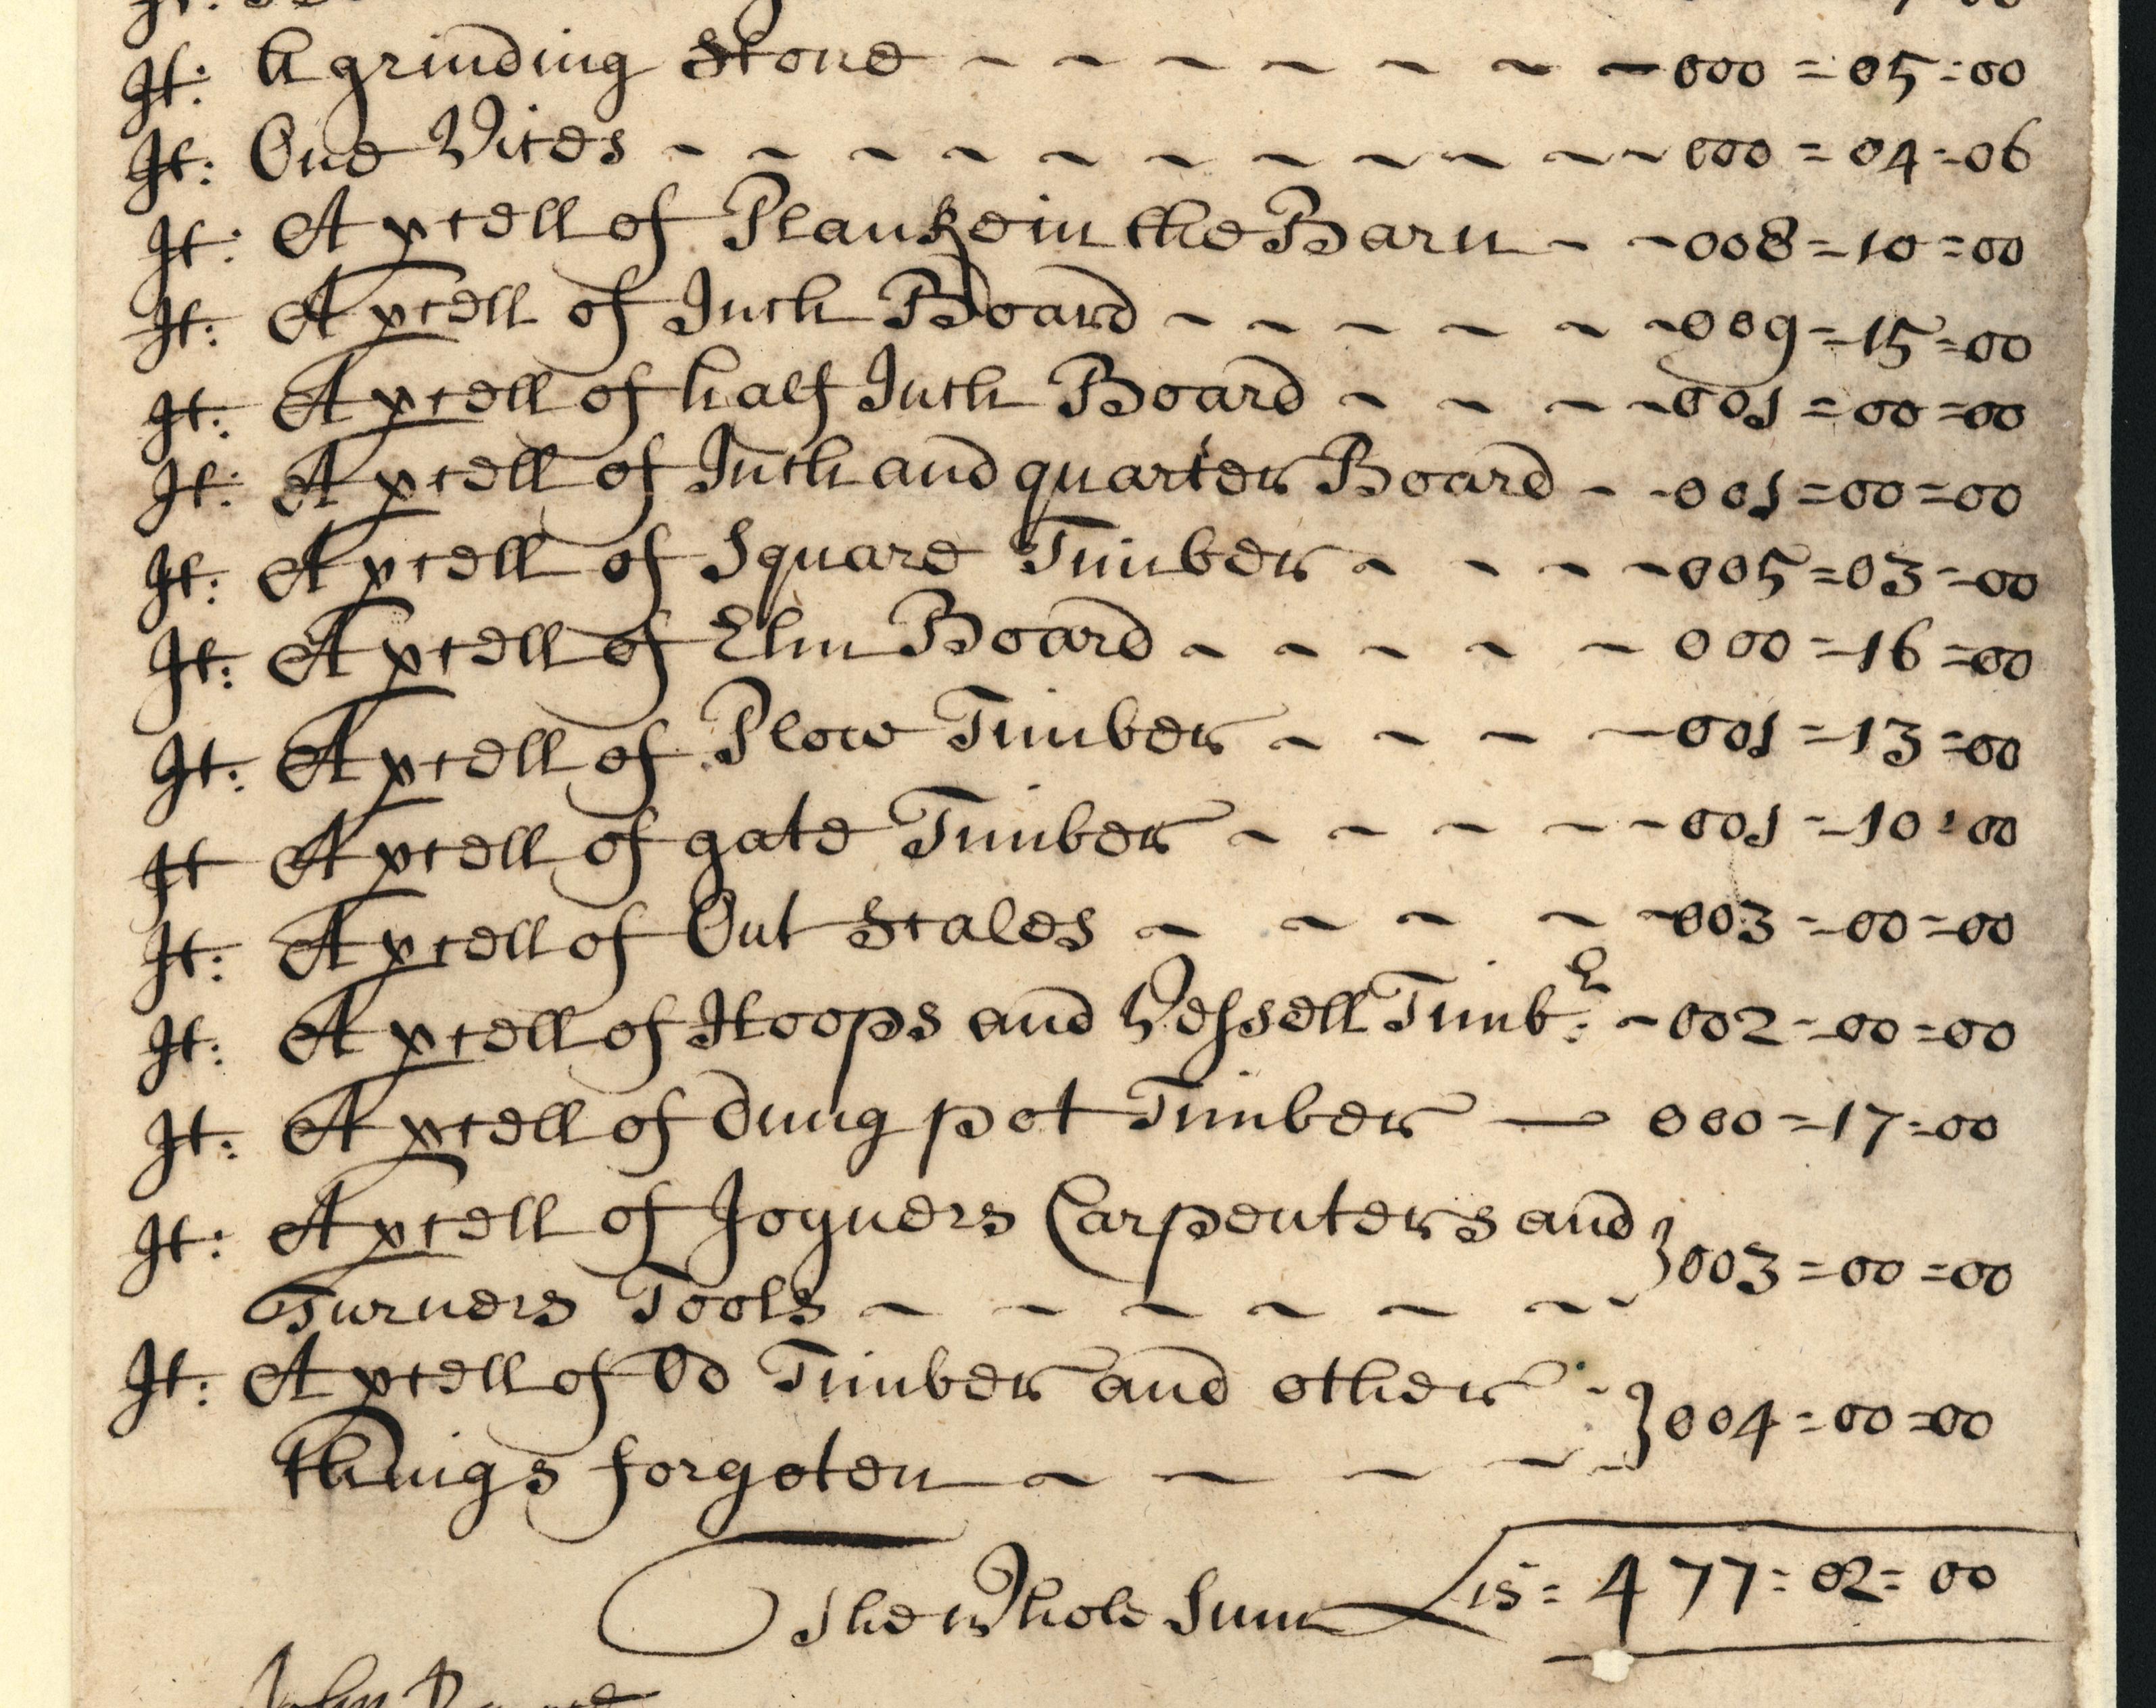 It: A grinding Stone - - - - - - - 000 = 05 = 00
It: One Vices - - - - - - - - - - 000 = 04 = 06
It: A pcell of Planke in the Barn - - 008 = 10 = 00
It: A pcell of Inch Board - - - - - - 009 = 15 = 00
It: A pcell of half Inch Board - - - - 001 = 00 = 00
It: A pcell of Inch and quarter Board - - 001 = 00 = 00
It: A pcell of Square Timber - - - - 005 = 03 = 00
It: A pcell of Elm Board - - - - - 000 = 16 = 00
It: A pcell of Plow Timber - - - - 001 = 13 = 00
It A pcell of gate Timber - - - - - 001 = 10 : 00
It: A pcell of Out Scales - - - - - 003 = 00 = 00
It: A pcell of Hoops and Vessell Timb:r - 002 = 00 = 00
It: A pcell of dung pot Timber — 000 = 17 = 00
It: A pcell of Joyners Carpenters and
Turners Tools - - - - - - - } 003 = 00 = 00
It: A pcell of Od Timber and other -
things forgoten - - - - - } 004 = 00 = 00
The Whole Sum is = 477 = 02 = 00
John